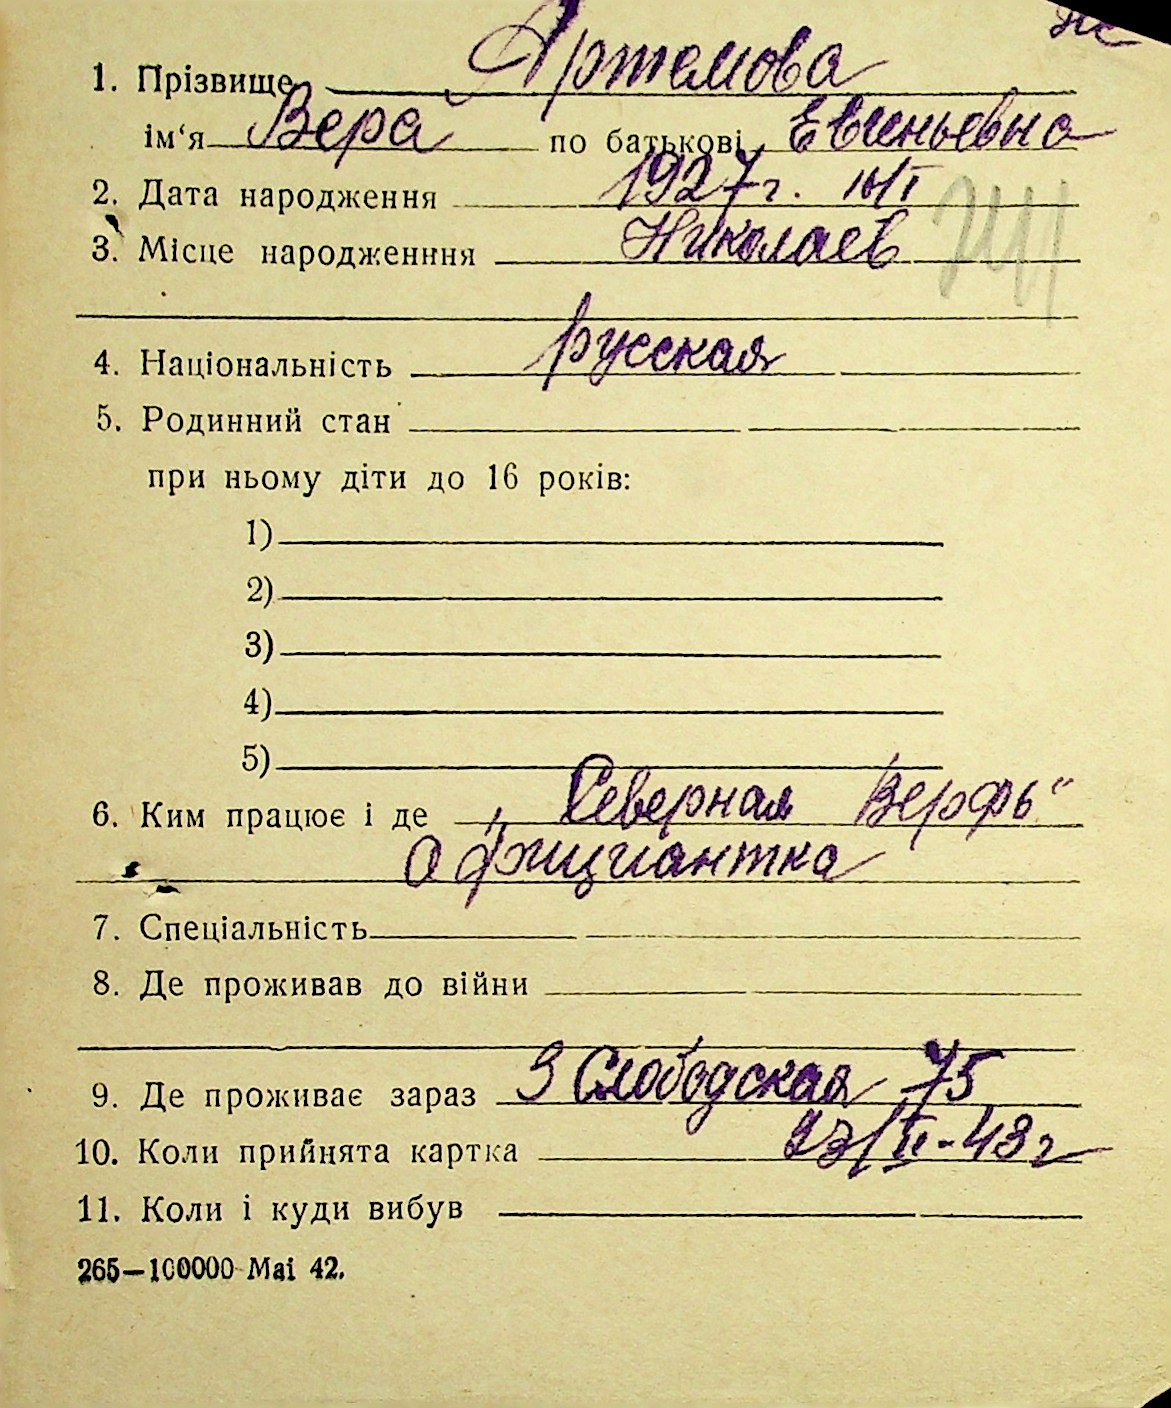 1. Прізвище Артемова
ім‘я Вера по батькові Евгеньевна
2. Дата народження 1927 г. 10/I
3. Місце народженння Николаев
4. Національність русская
5. Родинний стан
при ньому діти до 16 років:
1)
2)
3)
4)
5)
6. Ким працює і де „Северная Верфь“
Официантка
7. Спеціальність
8. Де проживав до війни
9. Де проживає зараз 3 Слободская 75
10. Коли прийнята картка 23/II-43 г
11. Коли і куди вибув
265—100000 Mai 42.